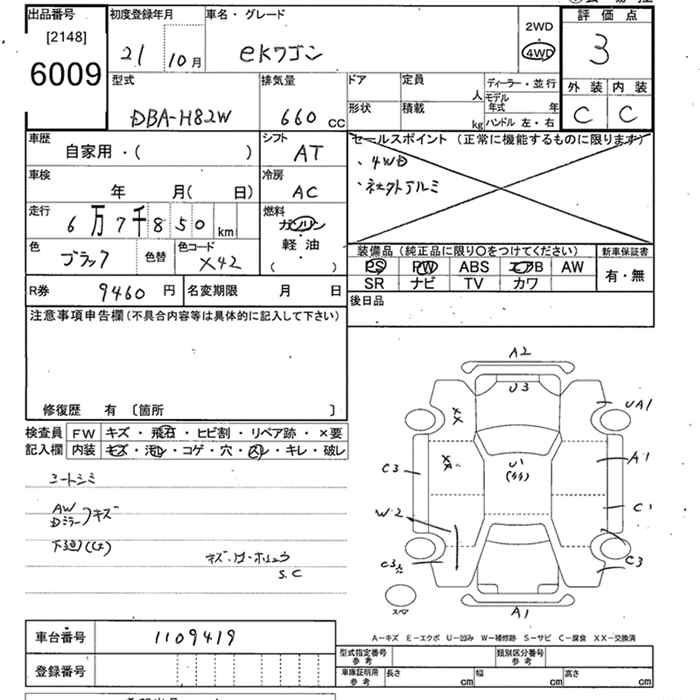 出品番号
[2148]
6009
初度登録年月
21 10月
車名・グレード
eKワゴン
2WD
4WD
評価点
3
外装 内装
C C
型式
DBA-H82W
排気量
660 CC
ドア
定員
人
形状
積載
kg
ディーラー・並行
モデル年式 年
ハンドル 左・右
車歴
自家用・( )
シフト
AT
セールスポイント (正常に機能するものに限ります)
・4WD
・社外アルミ
車検
年 月( 日)
冷房
AC
走行
6万7千850 km
燃料
ガソリン
軽油
( )
色
ブラック
色替
色コード
X42
装備品 (純正品に限り〇をつけてください)
PS PW ABS エアB AW
SR ナビ TV カワ
新車保証書
有・無
R券 9460 円
名変期限 月 日
後日品
注意事項申告欄 (不具合内容等は具体的に記入して下さい)
修復歴 有 〔箇所 〕
検査員記入欄
FW キズ・飛石・ヒビ割・リペア跡・×要
内装 キズ・汚レ・コゲ・穴・スレ・キレ・破レ
シートシミ
AW
Dミラー キズ
下廻り(サ)
S.C
A2
U3
UA1
A1
U1
C3
C1
W2
C3
A1
スペア
A－キズ E－エクボ U－凹み W－補修跡 S－サビ C－腐食 XX－交換済
車台番号 1109419
登録番号
型式指定番号
参考
類別区分番号
参考
車庫証明用
参考
長さ cm
幅 cm
高さ cm